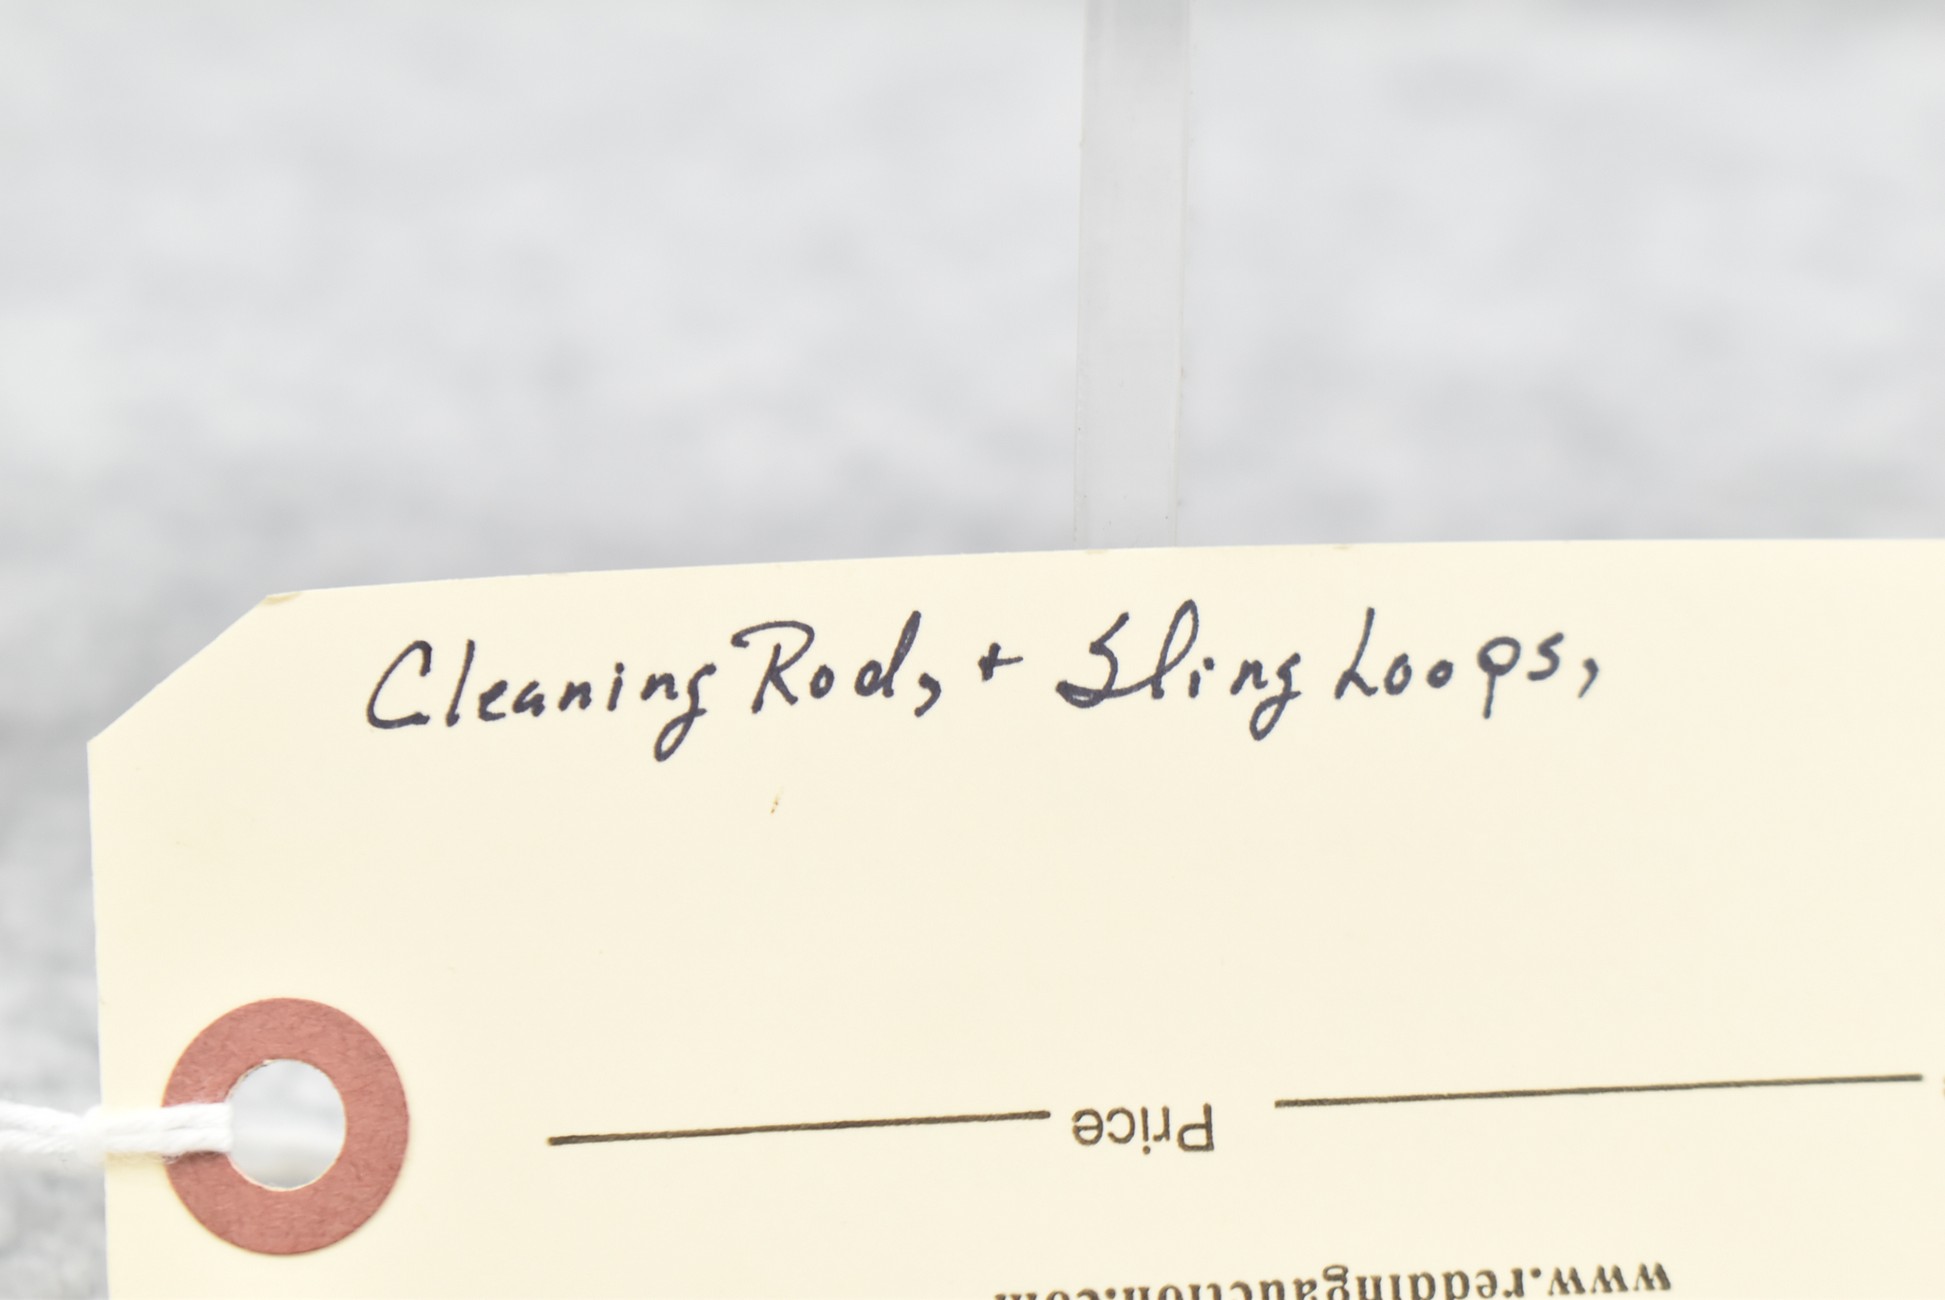 Cleaning Rod, + Sling Loops,
Price
www.redingauction.com